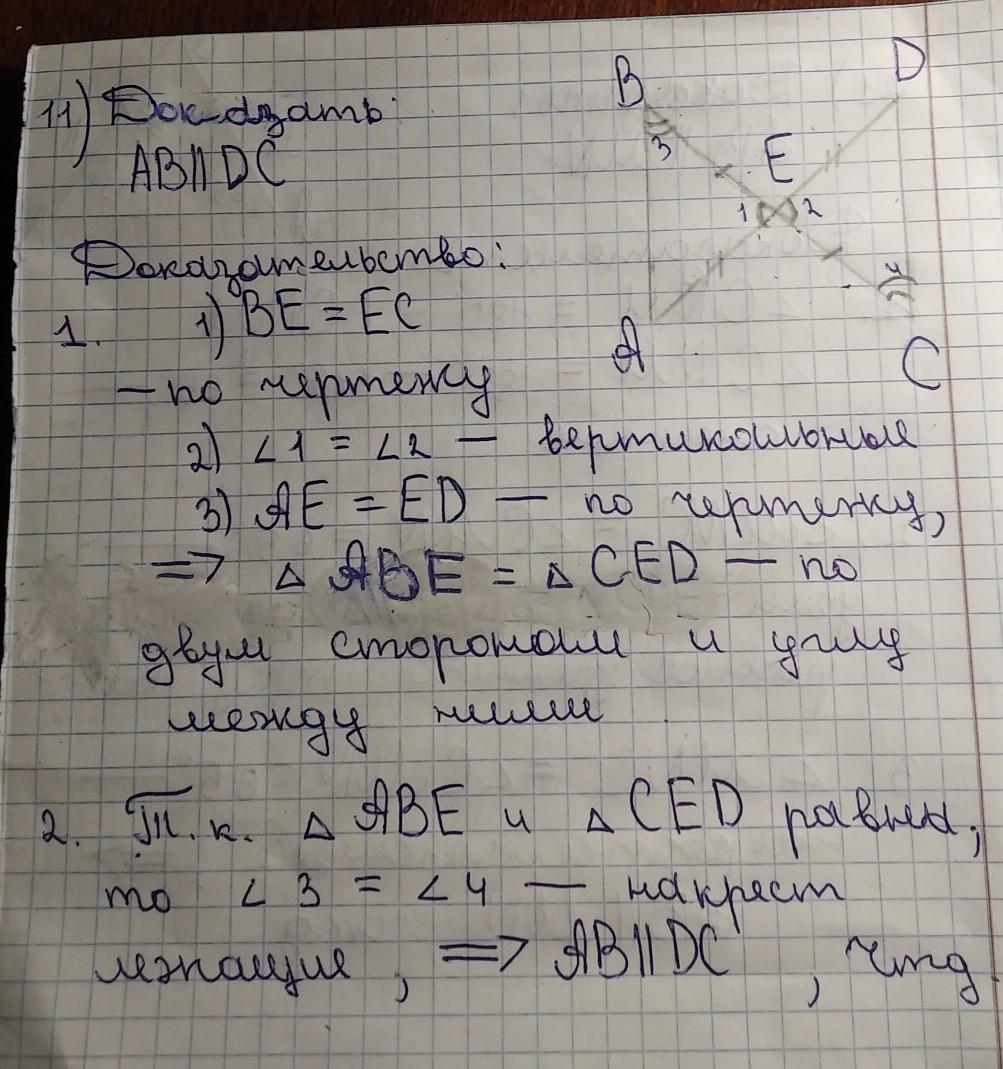 11) Доказать:
AB || DC
Доказательство:
1. 1) BE = EC
— по чертежу
2) ∠1 = ∠2 — вертикальные
3) AE = ED — по чертежу,
=> △ ABE = △ CED — по
двум сторонам и углу
между ними
2. Т.к. △ ABE и △ CED равны,
то ∠3 = ∠4 — накрест
лежащие, => AB || DC, чтд
B
D
3
E
1
2
4
A
C